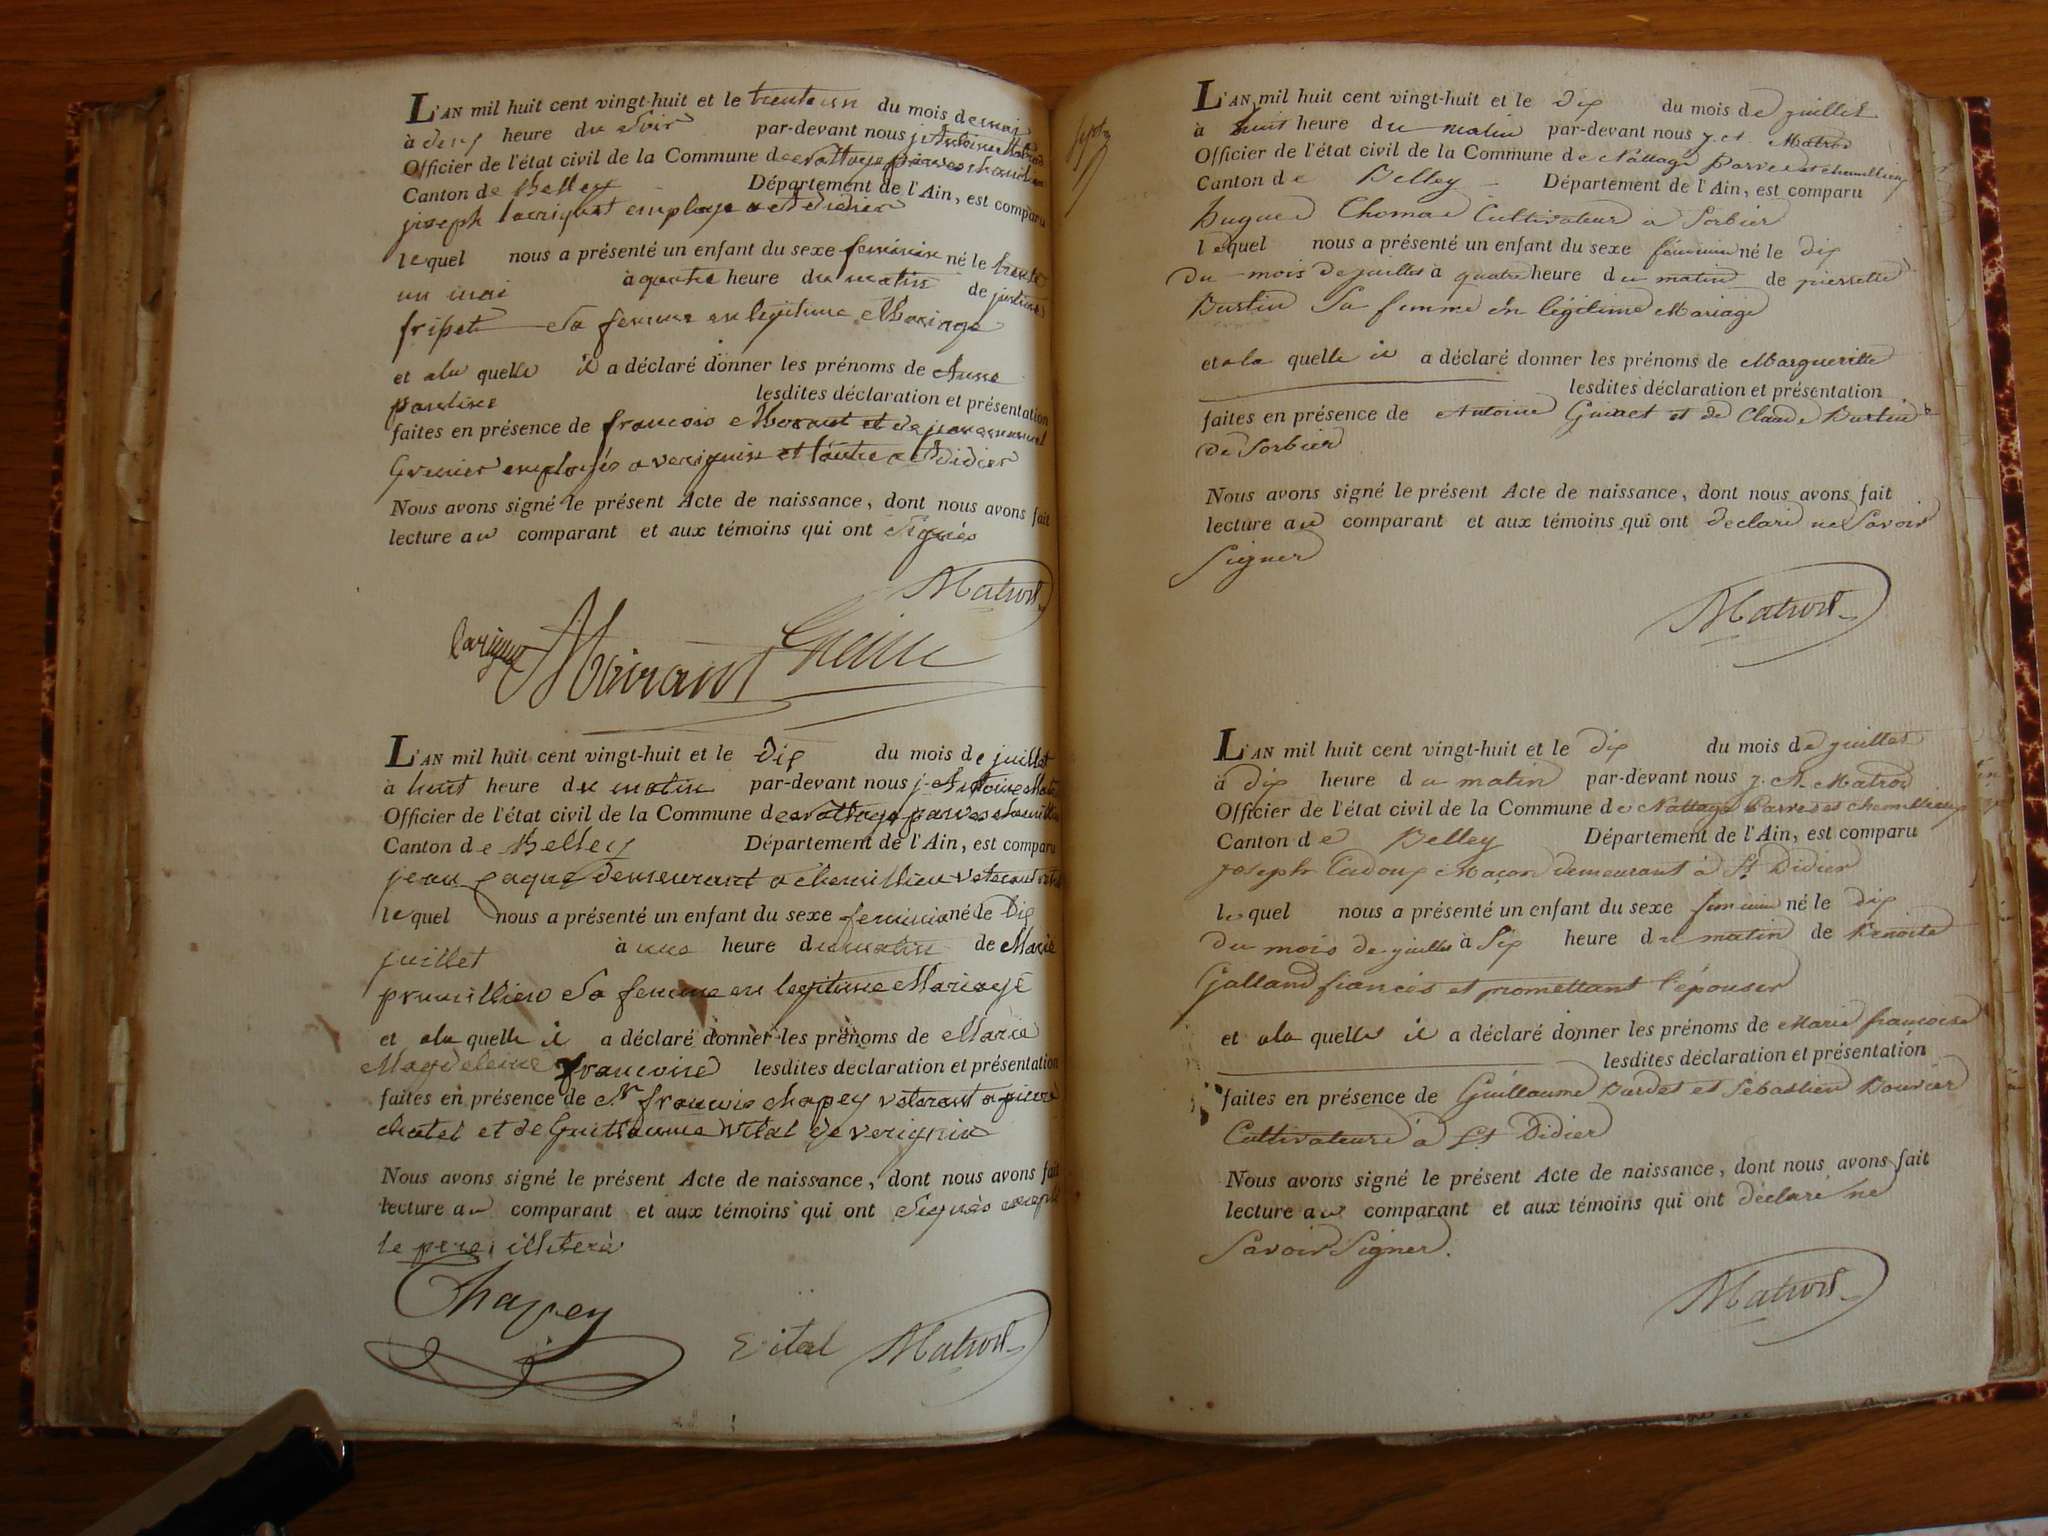 L'AN mil huit cent vingt-huit et le trente un du mois de mai
à deux heure du Soir par-devant nous j. Antoine Matrod
Officier de l'état civil de la Commune de nattage parves chemillieu
Canton de Belley Département de l'Ain, est comparu
joseph employé a St didier
lequel nous a présenté un enfant du sexe feminin né le trente
un mai à quatre heure du matin de justine
fripet Sa femme en légitime Mariage
et ala quelle il a déclaré donner les prénoms de Anne
pauline lesdites déclaration et présentation
faites en présence de francois Morant et de jean emanuel
Grenier employés a verignin et l'autre a St didier
Nous avons signé le présent Acte de naissance, dont nous avons fait
lecture au comparant et aux témoins qui ont Signés
Matrod
L'AN mil huit cent vingt-huit et le Dix du mois de juillet
à huit heure du matin par-devant nous j. Antoine Mat
Officier de l'état civil de la Commune de nattage parves chemillieu
Canton de Belley Département de l'Ain, est comparu
jean paque demeurant a chemillieu veterant
lequel nous a présenté un enfant du sexe feminin né le Dix
juillet à une heure du matin de Marie
prumillieu Sa femme en legitime Mariage
et ala quelle il a déclaré donner les prénoms de Maria
Magdeleine francoise lesdites déclaration et présentation
faites en présence de Mr francois chapey veterant a pierre
chatel et de Guillaume vital de verignin
Nous avons signé le présent Acte de naissance, dont nous avons fait
lecture au comparant et aux témoins qui ont Signés excepté
le pere illiteré
Chapey
vital Matrod
L'AN mil huit cent vingt-huit et le Dix du mois de juillet
à huit heure du matin par-devant nous j. A. Matrod
Officier de l'état civil de la Commune de Nattage Parves et chemillieu
Canton de Belley Département de l'Ain, est comparu
hugue Thomas Cultivateur a Sorbier
lequel nous a présenté un enfant du sexe féminin né le dix
du mois de juillet à quatre heure du matin de pierrette
Burtin Sa femme En légitime Mariage
et ala quelle il a déclaré donner les prénoms de Margueritte
lesdites déclaration et présentation
faites en présence de Antoine Guinet et de Claude Burtin
de Sorbier
Nous avons signé le présent Acte de naissance, dont nous avons fait
lecture au comparant et aux témoins qui ont déclaré ne Savoir
Signer
Matrod
L'AN mil huit cent vingt-huit et le dix du mois de juillet
à dix heure du matin par-devant nous j. A. Matrod
Officier de l'état civil de la Commune de Nattage Parves et chemillieu
Canton de Belley Département de l'Ain, est comparu
joseph Cadoux Maçon demeurant à St Didier
lequel nous a présenté un enfant du sexe feminin né le dix
du mois de juillet à Six heure du matin de Benoite
Galland fiancés et promettant l'épouser
et ala quelle il a déclaré donner les prénoms de Marie francoise
lesdites déclaration et présentation
faites en présence de Guillaume Bardet et Sébastien Bouvier
Cultivateurs à St Didier
Nous avons signé le présent Acte de naissance, dont nous avons fait
lecture au comparant et aux témoins qui ont déclaré ne
Savoir Signer.
Matrod